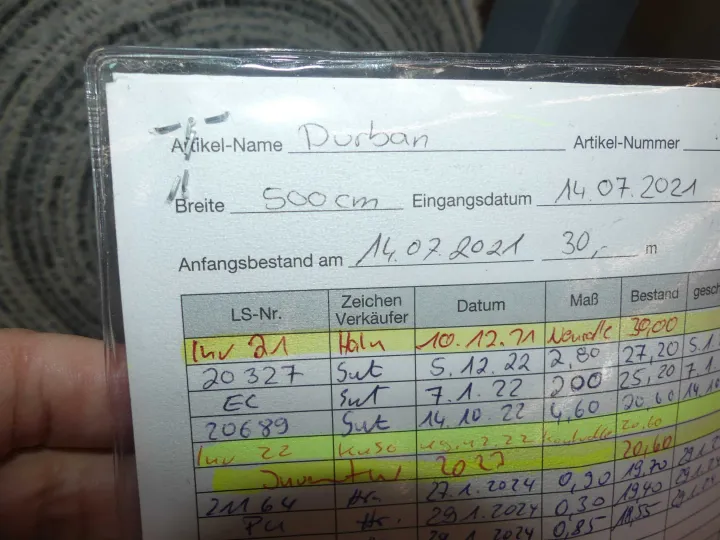 Artikel-Name Durban Artikel-Nummer
Breite 500 cm Eingangsdatum 14.07.2021
Anfangsbestand am 14.07.2021 30,- m
LS-Nr. Zeichen Verkäufer Datum Maß Bestand gesch
Inv 21 10.12.21 30,00
20327 Sut 5.12.22 2,80 27,20 5.1
EC Sut 7.1.22 200 25,20 7.1
20689 Sut 14.10.22 4,60 20 60 14.10
Inv 22
20,60
21164 Hr. 27.1.2024 0,90 19,70
PU Hr. 29.1.2024 0,30 19,40
0,85 18,55